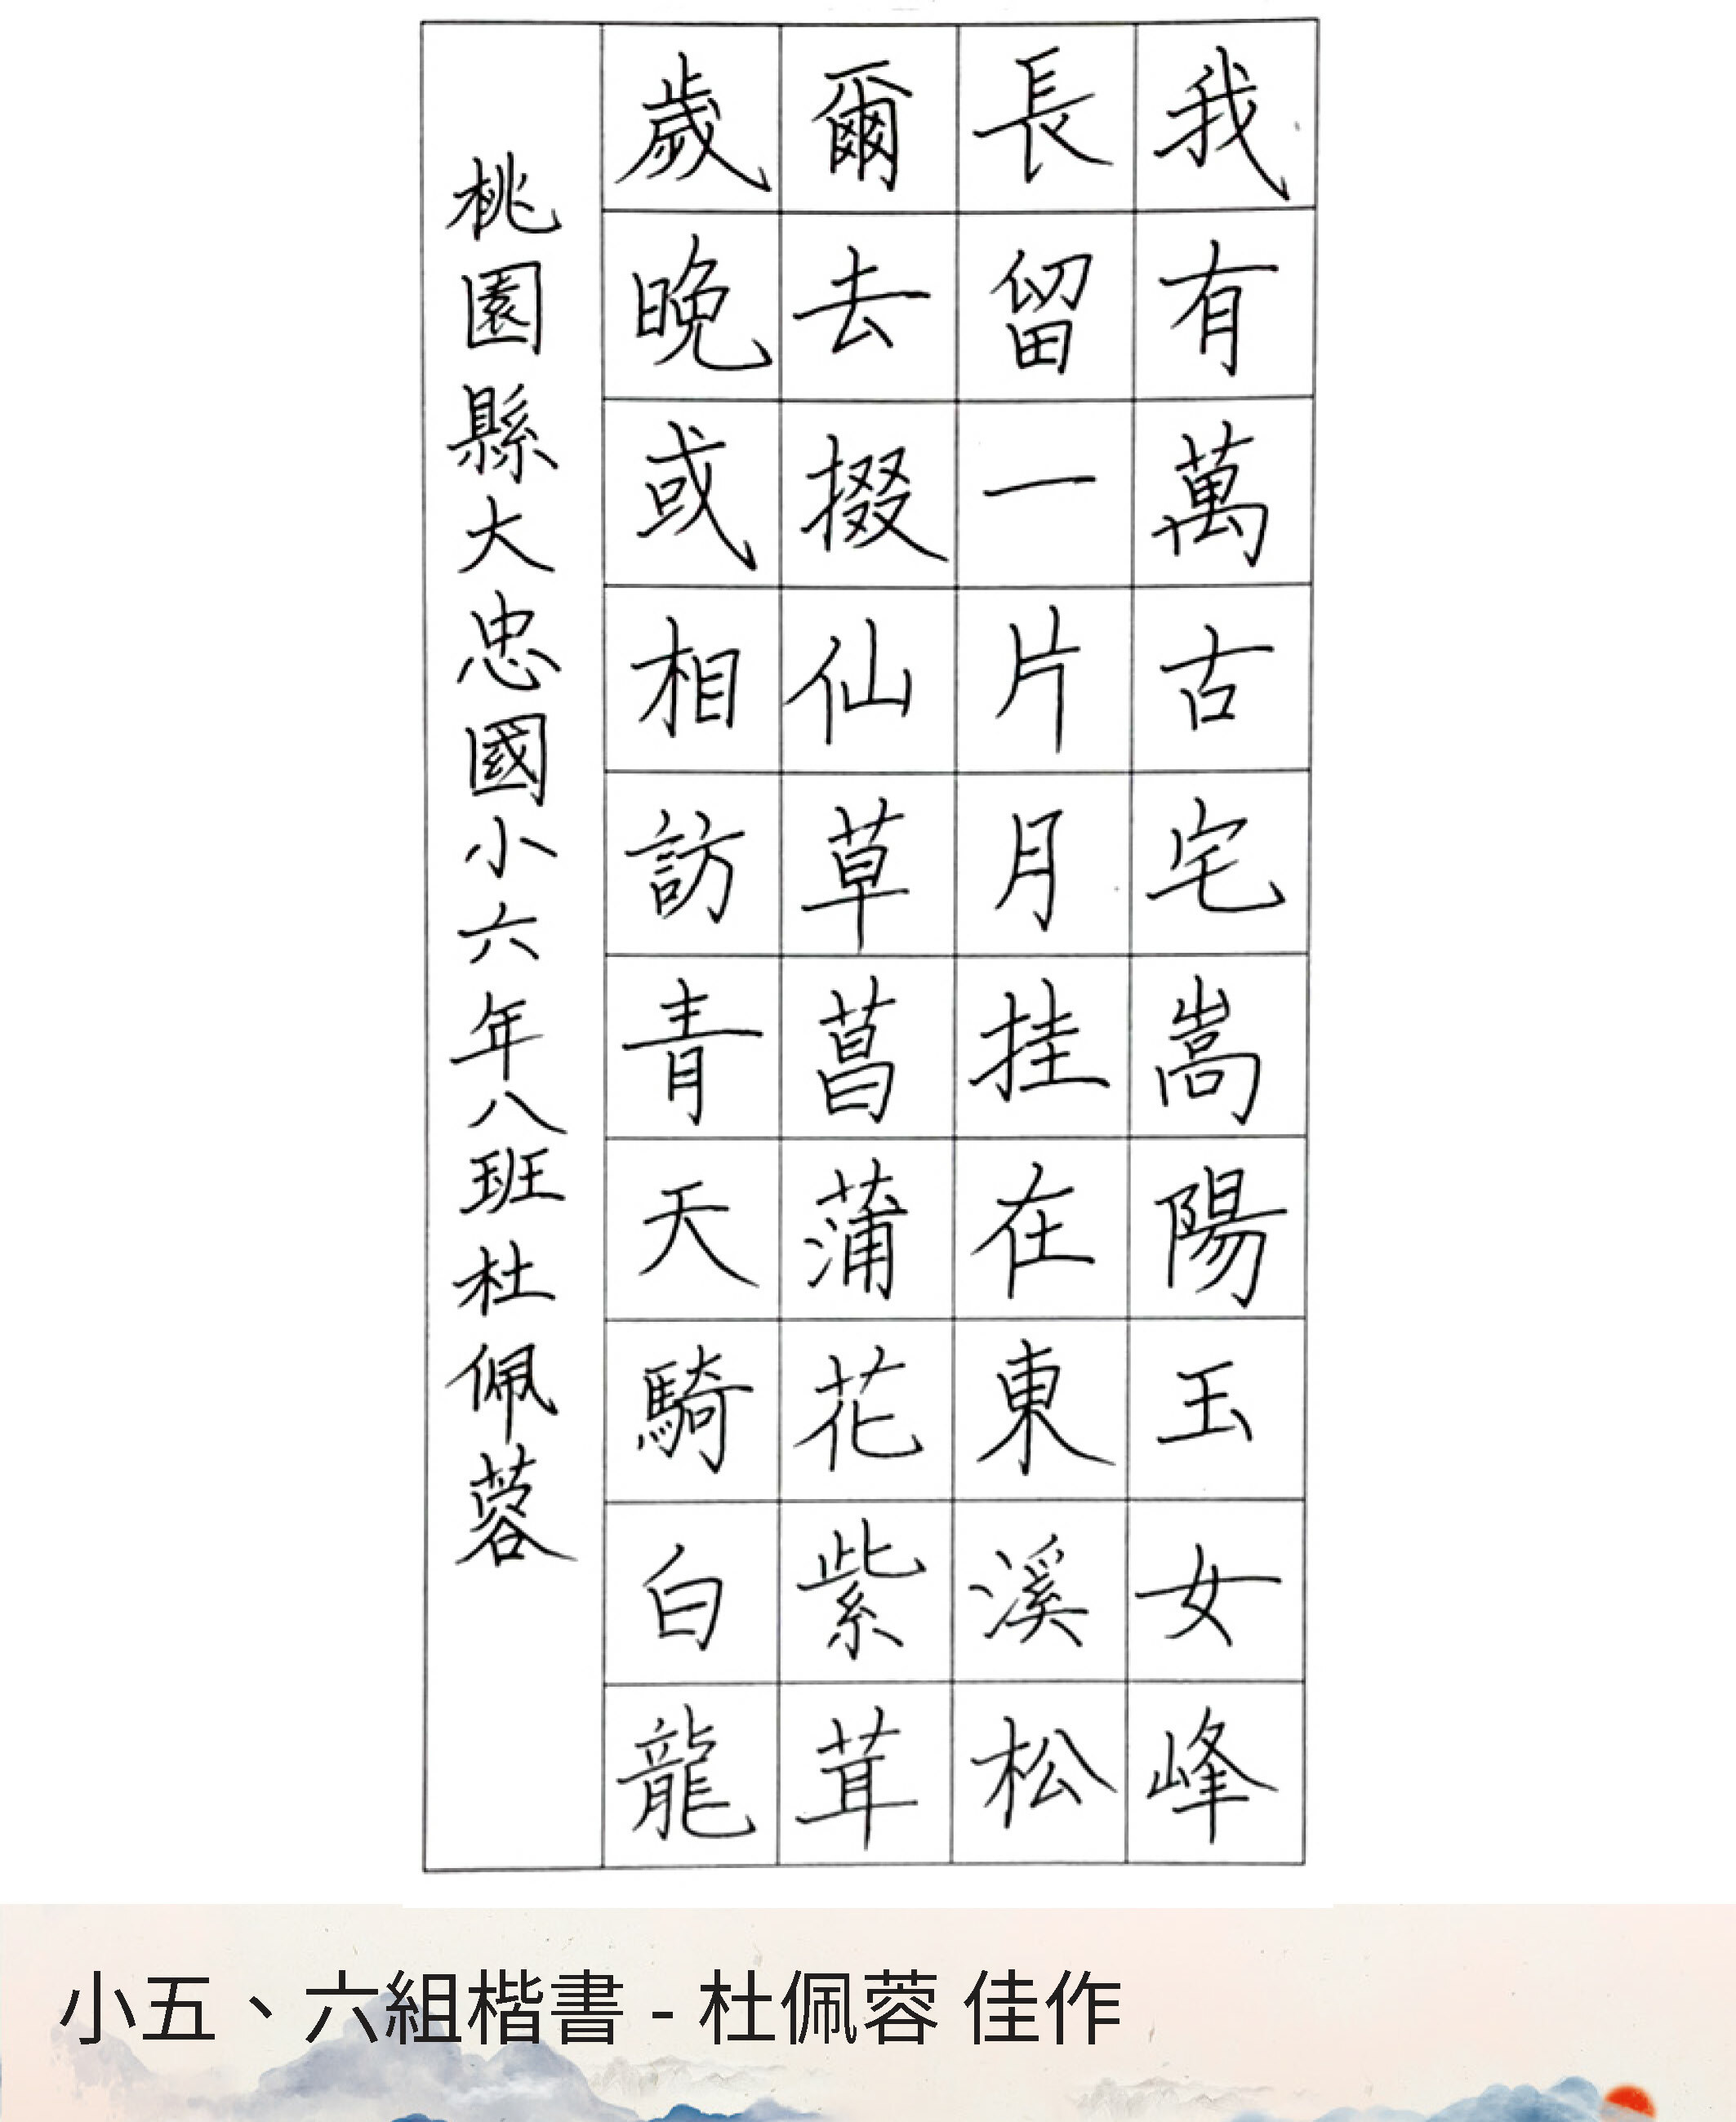 我有萬古宅嵩陽玉女峰
長留一片月挂在東溪松
爾去掇仙草菖蒲花紫茸
歲晚或相訪青天騎白龍
桃園縣大忠國小六年八班杜佩蓉
小五、六組楷書 - 杜佩蓉 佳作